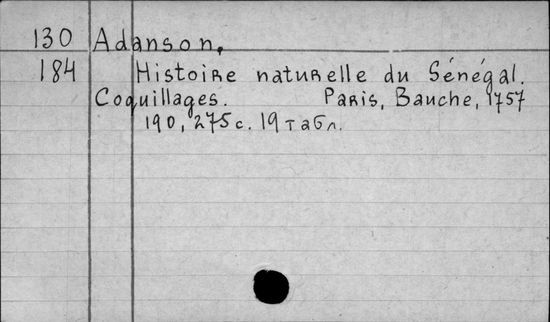 130 Adanson,
184 Histoire naturelle du Sénégal.
Coquillages. Paris, Bauche, 1757
190, 275 с. 19 табл.